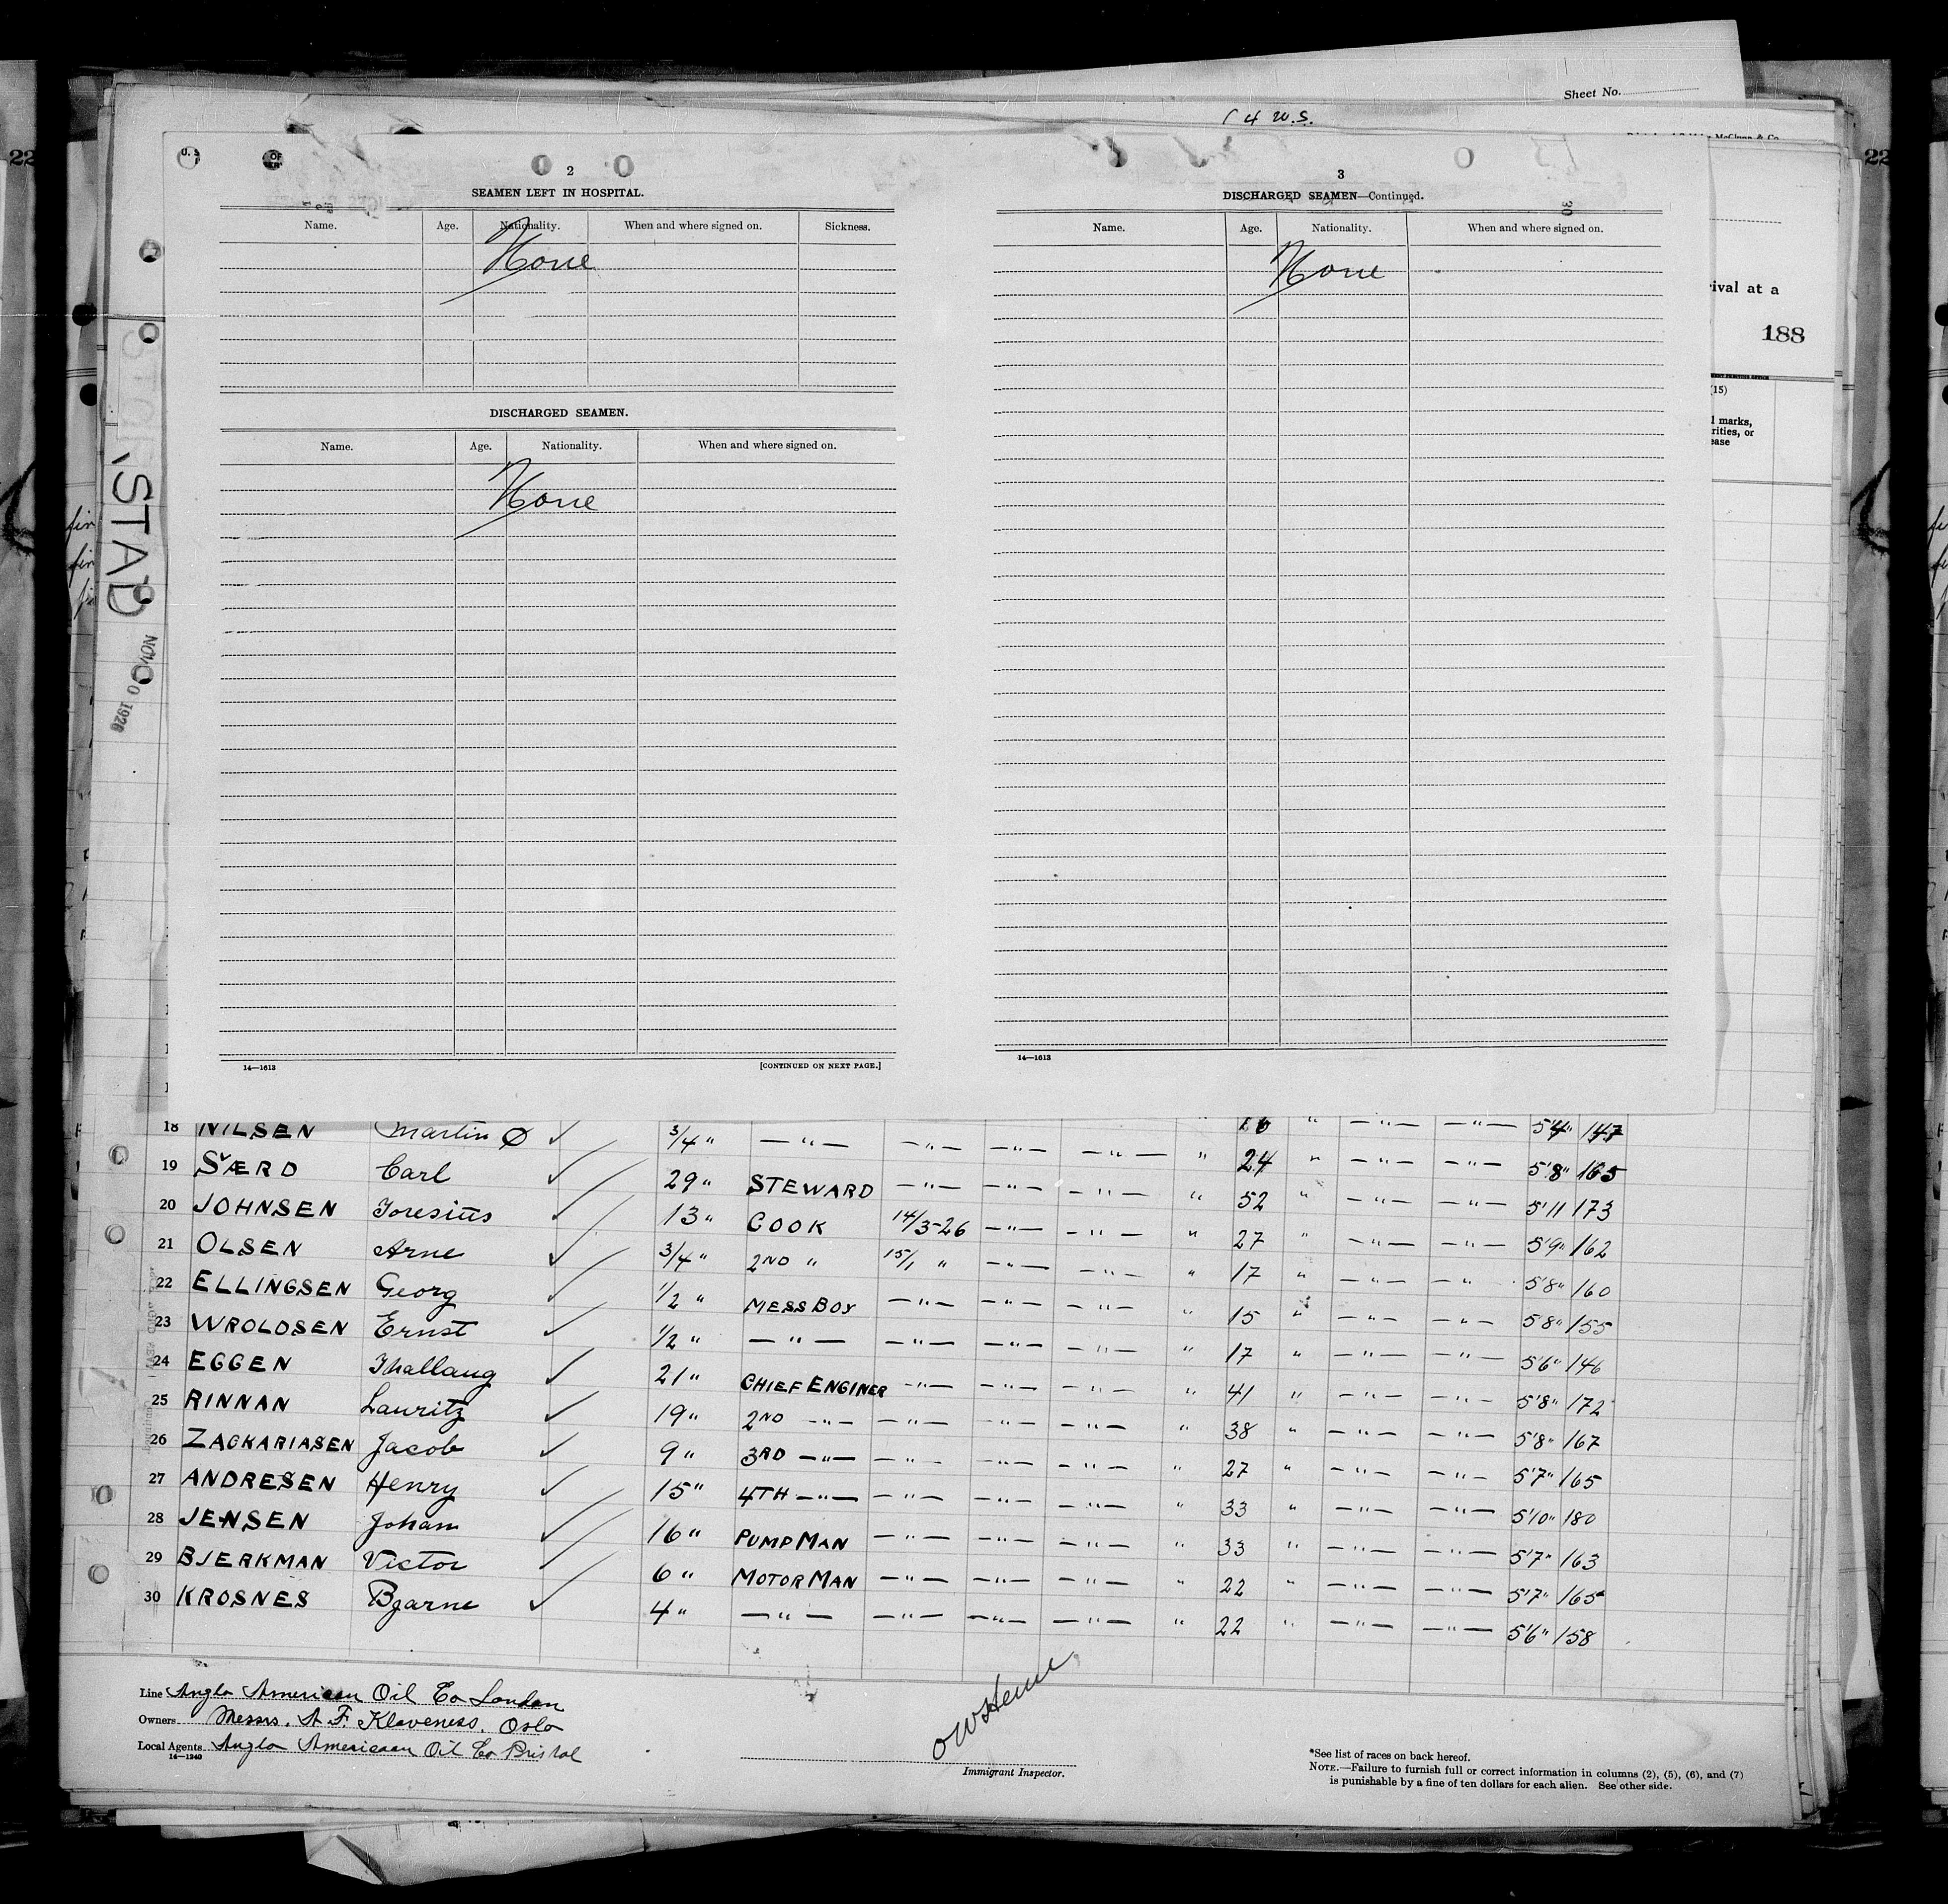 Sheet No.
4 W.S.
2
SEAMEN LEFT IN HOSPITAL.
Name. Age. Nationality. When and where signed on. Sickness.
None
DISCHARGED SEAMEN.
Name. Age. Nationality. When and where signed on.
None
14—1613 [CONTINUED ON NEXT PAGE.]
3
DISCHARGED SEAMEN—Continued.
Name. Age. Nationality. When and where signed on.
None
14—1613
rival at a
188
(15)
marks,
rities, or
ease
STAD
NOV
0 1926
18 NILSEN Martin Ø ✓ 3/4 " —"— —"— —"— —"— " 26 " —"— —"— 5'4" 147
19 SÆRD Carl ✓ 29 " STEWARD —"— —"— —"— " 24 " —"— —"— 5'8" 165
20 JOHNSEN Toresius ✓ 13 " COOK 14/3-26 —"— —"— " 52 " —"— —"— 5'11 173
21 OLSEN Arne ✓ 3/4 " 2ND " 15/1 " —"— —"— " 27 " —"— —"— 5'9" 162
22 ELLINGSEN Georg ✓ 1/2 " MESS BOY —"— —"— —"— " 17 " —"— —" 5'8" 160
23 WROLDSEN Ernst ✓ 1/2 " —"— —"— —"— —"— " 15 " —"— —"— 5'8" 155
24 EGGEN Thallaug ✓ 21 " CHIEF ENGINER —"— —"— —"— " 17 " —"— —"— 5'6" 146
25 RINNAN Lauritz ✓ 19 " 2ND —"— —"— —"— —"— " 41 " —"— —"— 5'8" 172
26 ZACKARIASEN Jacob ✓ 9 " 3RD —"— —"— —"— —"— " 38 " —"— —"— 5'8" 167
27 ANDRESEN Henry ✓ 15 " 4TH —"— —"— —"— —"— " 27 " —"— —"— 5'7" 165
28 JENSEN Johan ✓ 16 " PUMPMAN —"— —"— —"— " 33 " —"— —"— 5'10" 180
29 BJERKMAN Victor ✓ 6 " MOTORMAN —"— —"— —"— " 33 " —"— —"— 5'7" 163
30 KROSNES Bjarne ✓ 4 " —"— —"— —"— —"— " 22 " —"— —"— 5'7" 165
22 " —"— —"— 5'6" 158
Line Anglo American Oil Co London
Owners Messrs. A F. Klaveness. Oslo
Local Agents Anglo American Oil Co Bristol
14—1240
Immigrant Inspector.
*See list of races on back hereof.
NOTE.—Failure to furnish full or correct information in columns (2), (5), (6), and (7)
is punishable by a fine of ten dollars for each alien. See other side.